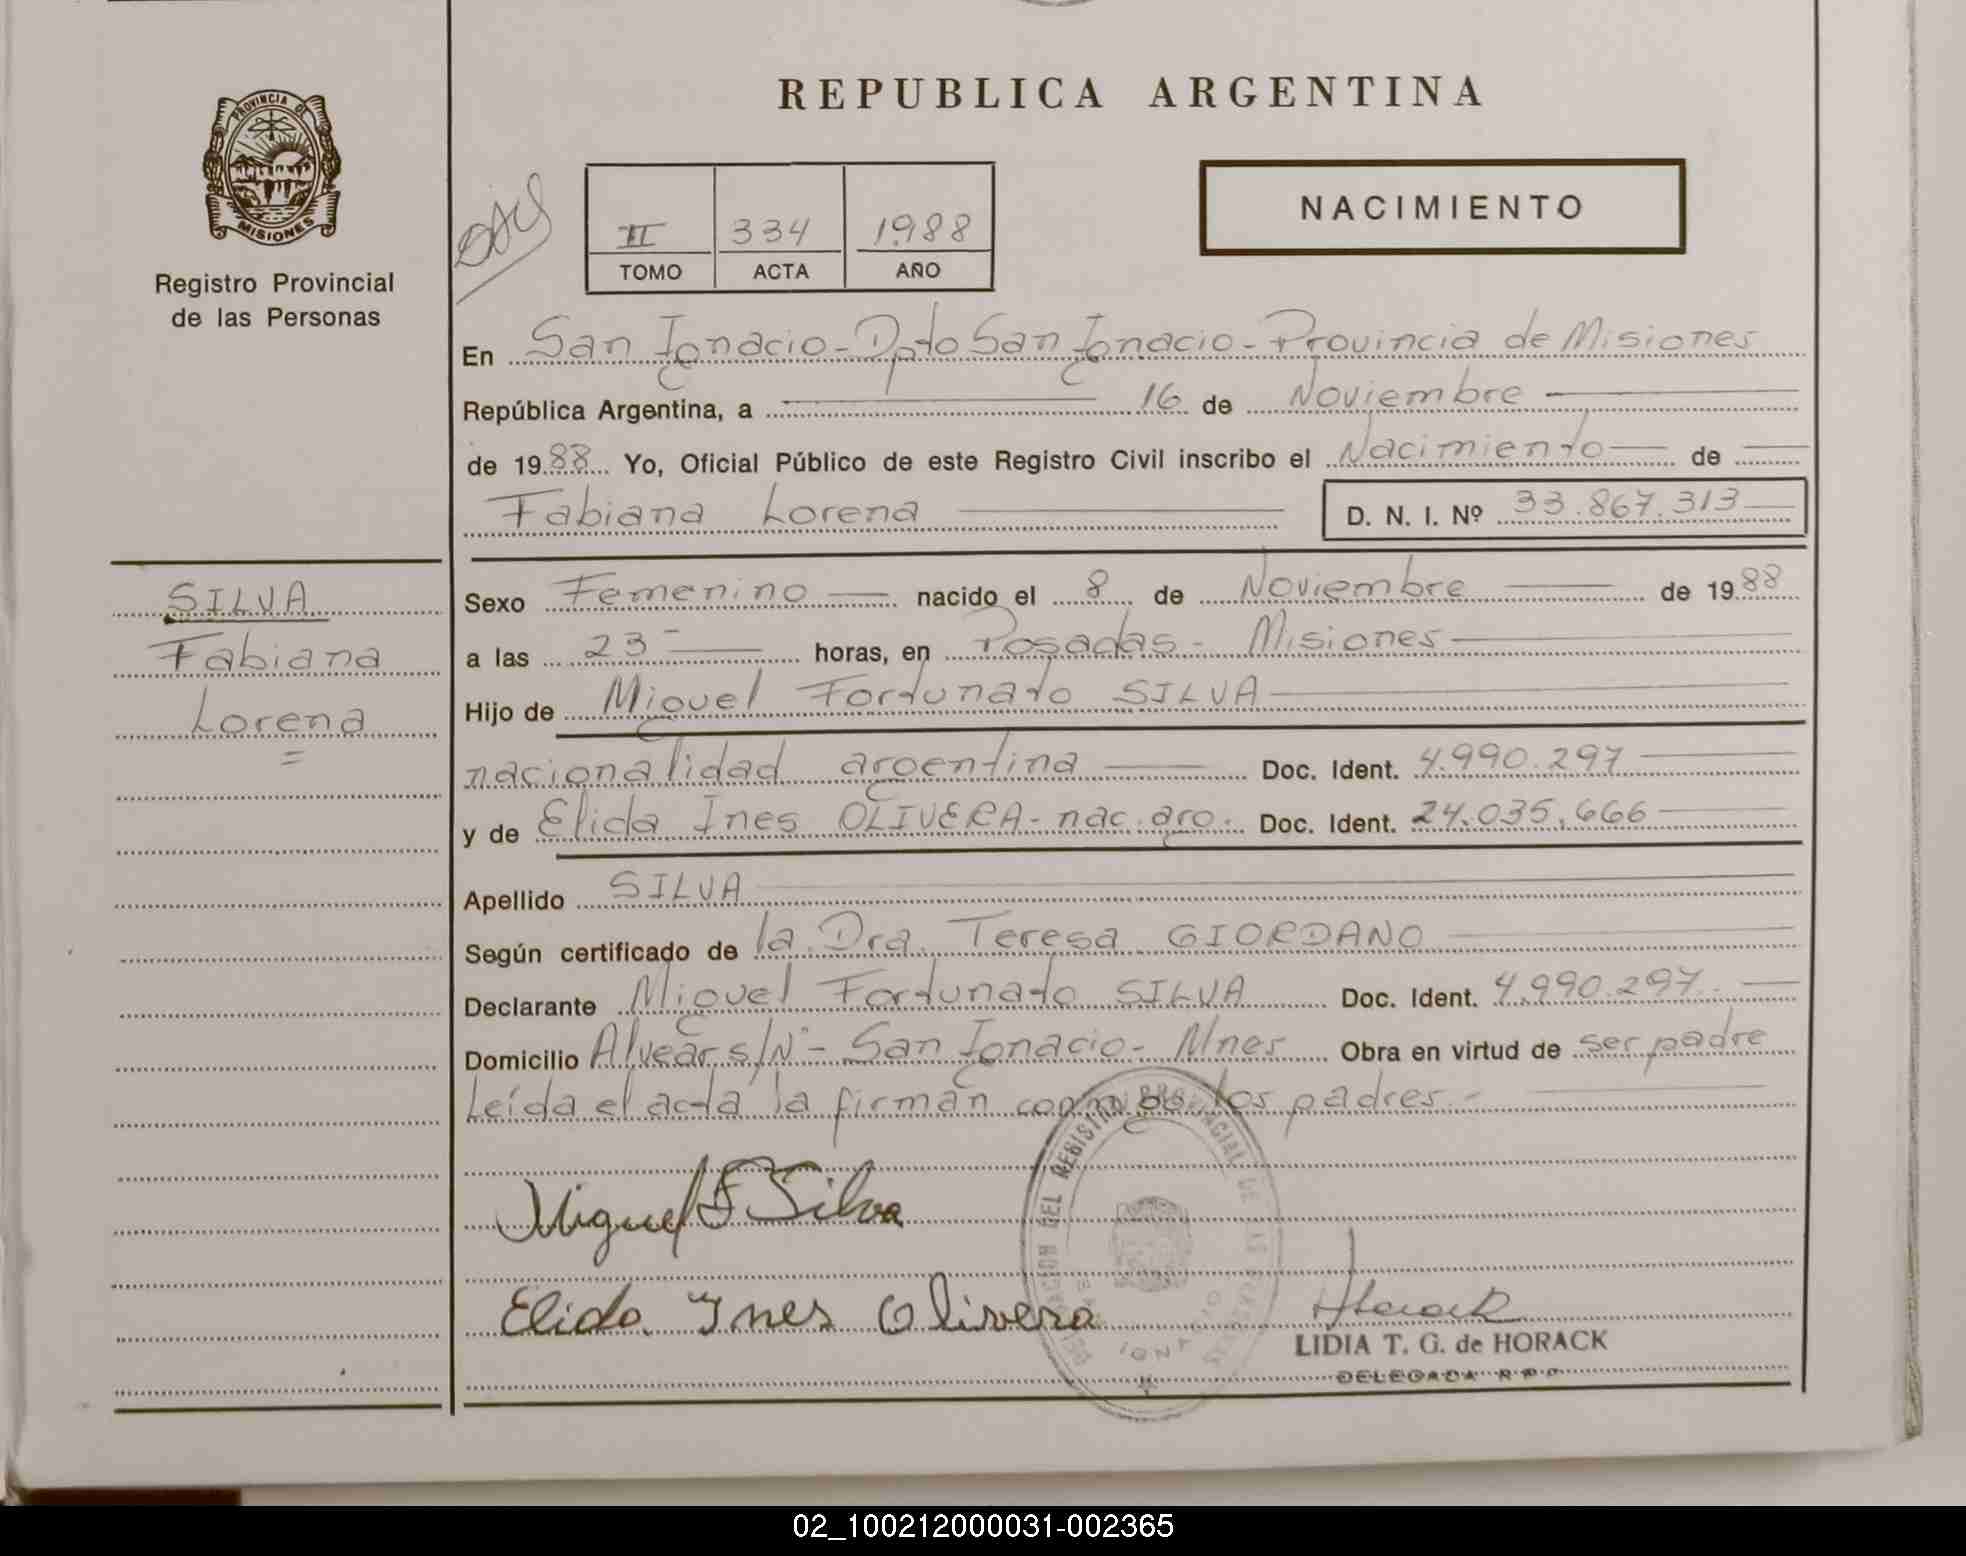 PROVINCIA DE
MISIONES
Registro Provincial
de las Personas
REPUBLICA ARGENTINA
II 334 1988
TOMO ACTA AÑO
NACIMIENTO
En San Ignacio - Dpto San Ignacio - Provincia de Misiones
República Argentina, a 16 de Noviembre
de 1988 Yo, Oficial Público de este Registro Civil inscribo el Nacimiento de
Fabiana Lorena D. N. I. Nº 33.867.313
SILVA
Fabiana
Lorena
Sexo Femenino nacido el 8 de Noviembre de 1988
a las 23 horas, en Posadas - Misiones
Hijo de Miguel Fortunato SILVA
nacionalidad argentina Doc. Ident. 4.990.297
y de Elida Ines OLIVERA - nac. arg. Doc. Ident. 24.035.666
Apellido SILVA
Según certificado de la Dra. Teresa GIORDANO
Declarante Miguel Fortunato SILVA Doc. Ident. 4.990.297
Domicilio Alvear s/Nº - San Ignacio - Mnes Obra en virtud de ser padre
Leída el acta la firman conmigo los padres.-
Miguel F Silva
Elida Ines Olivera
DEL REGISTRO PROVINCIAL DE LAS
IGNACIO
Horack
LIDIA T. G. de HORACK
DELEGADA R.P.P.
02_100212000031-002365